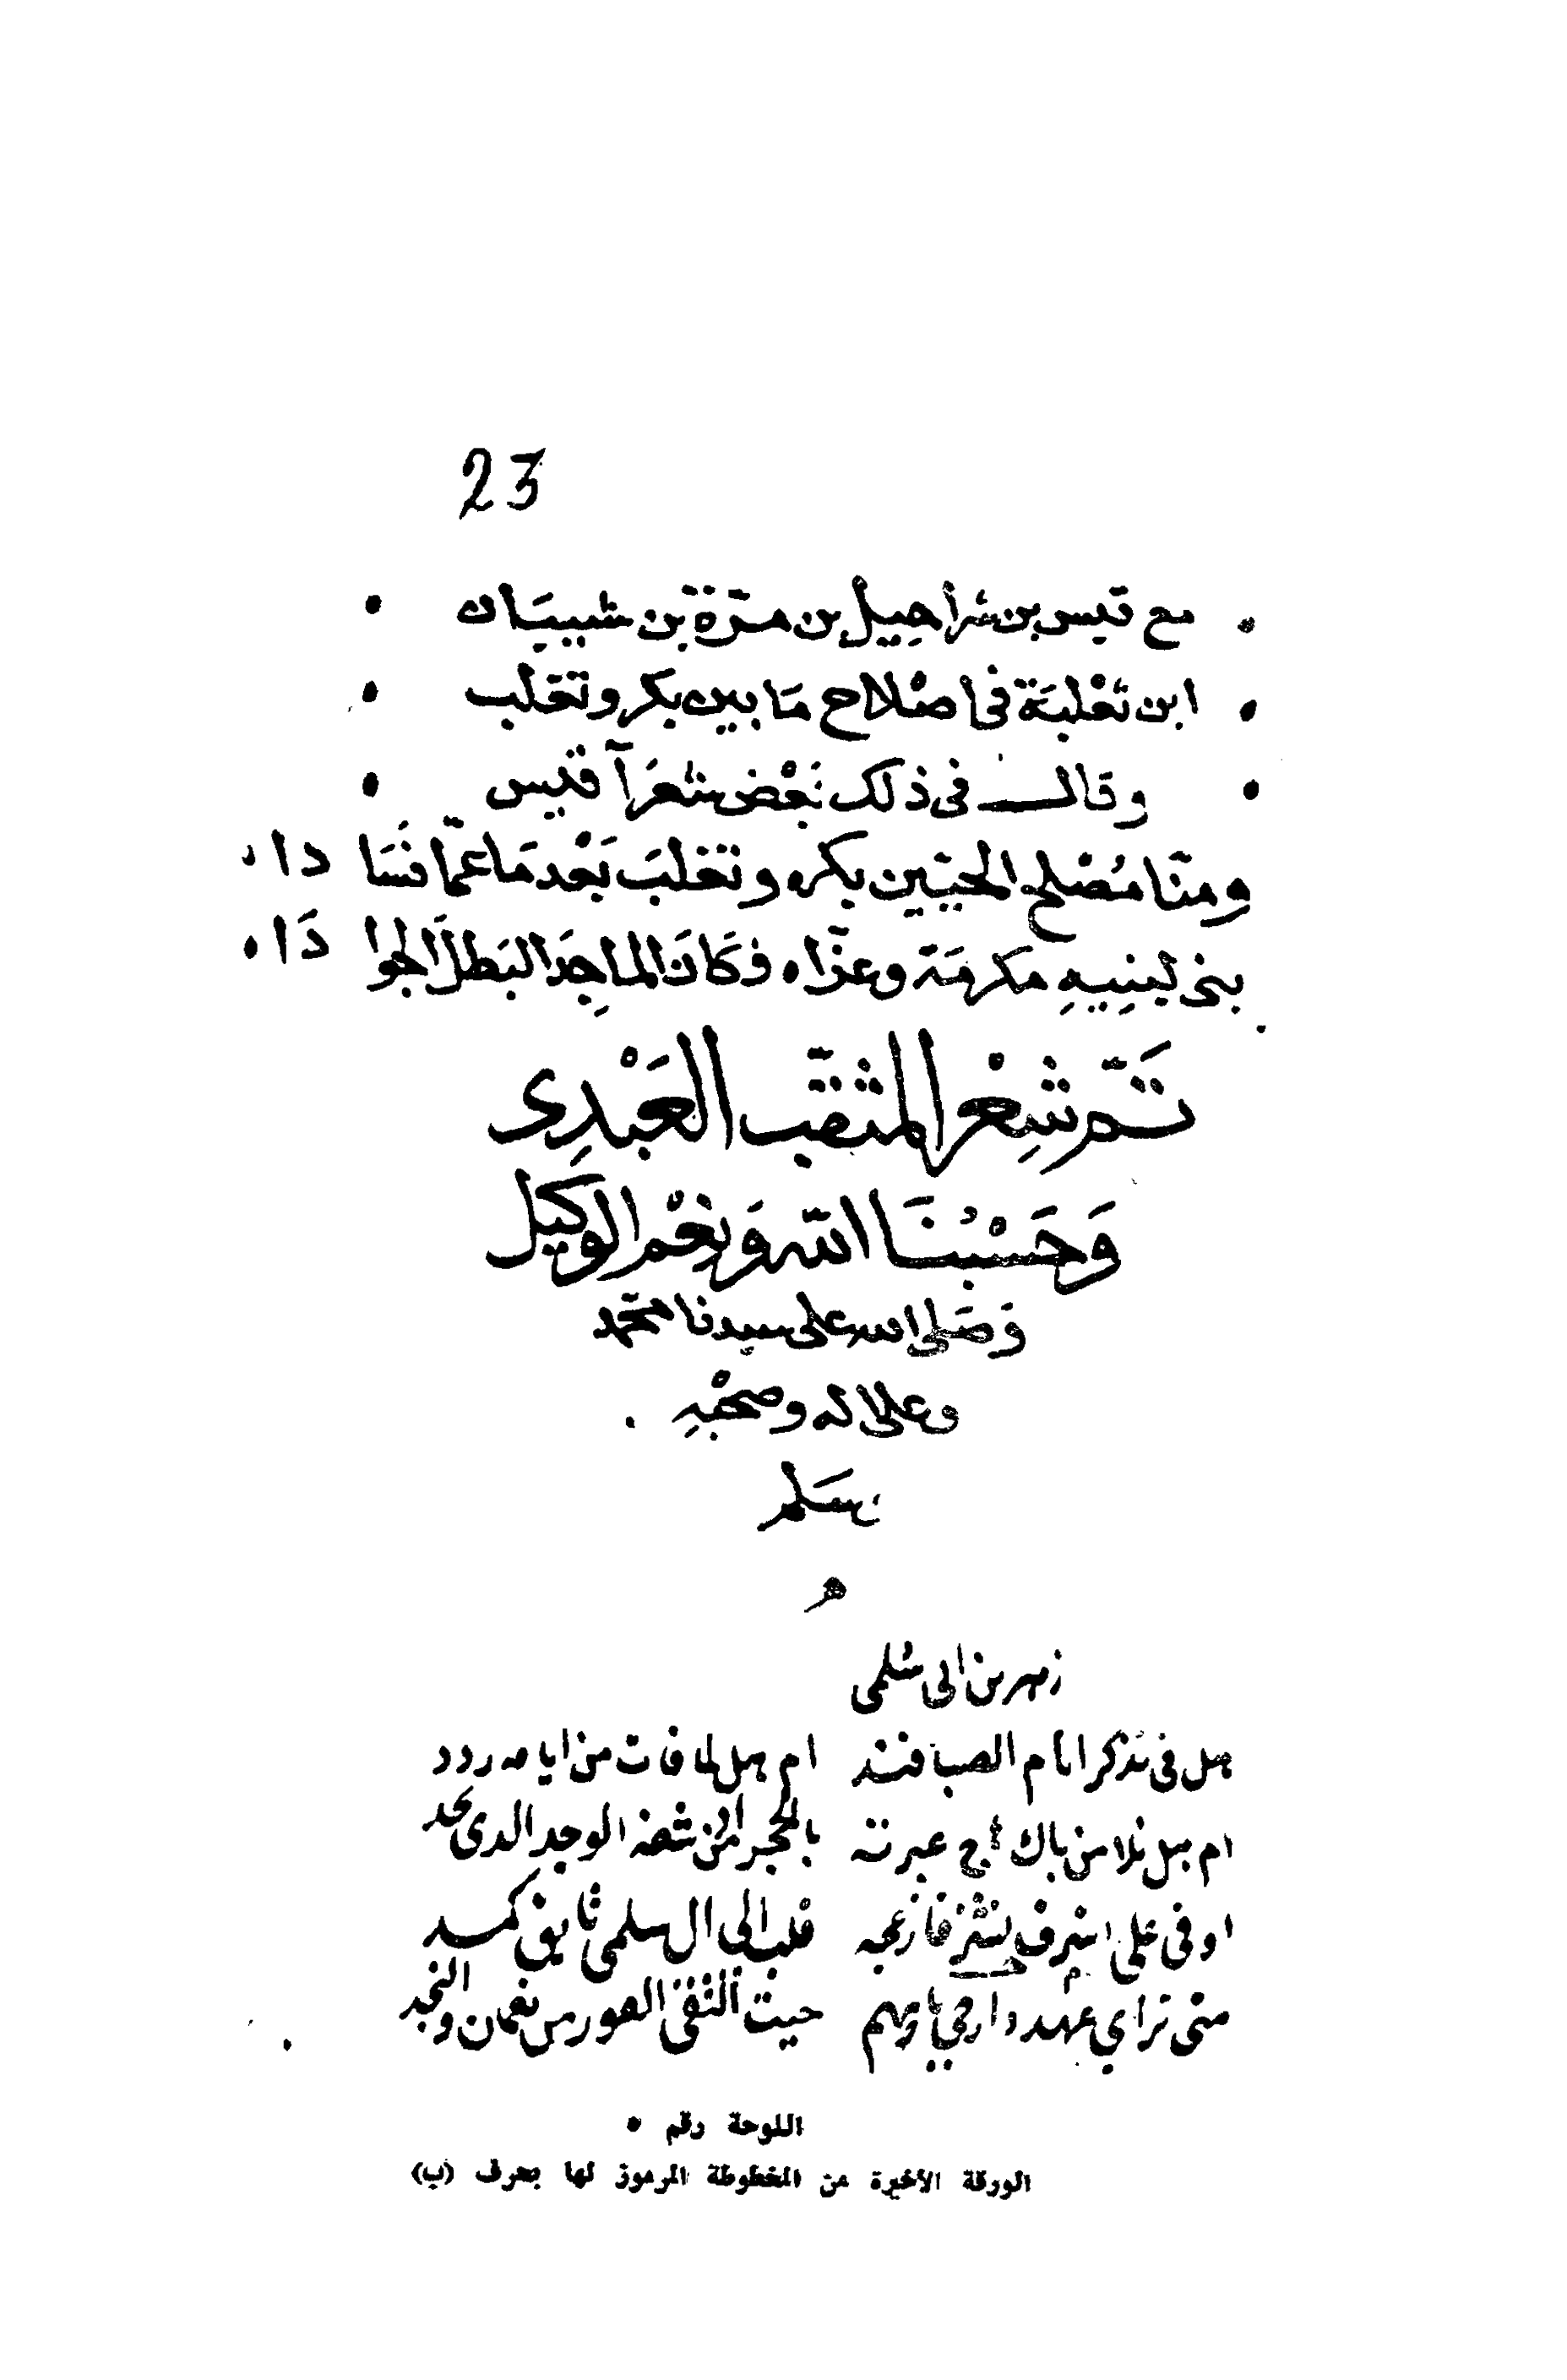 23
مع قيس بن شراحِيل بن مرّة بن شيبَان
ابن ثعْلبَة في اصْلاح مَا بين بكر وتغلب
وقال في ذلك بَعْض شعَرآ قيس
ومنّا مُصْلح الحيّين بكر وتغلبَ بَعْد مَا عمّا فسَادا
بنى لبنِيهِ مكرمَة وعزّا فكَانَ الماجِدَ البَطلَ الجوادَا
تَمّ شِعْر المثقّب العَبْدِى
وَحَسْبُنَا الله وَنِعْم الوَكيل
وَصَلى الله على سيدنا محمّد
وعلى اله وصحْبهِ
وسَلم
زهير بن ابى سُلمى
هل فى تذكر ايام الصبا فند ام هل لما فات من ايامه ردد
ام هل يلامن باك هاج عبرته بالحجر اذ شفه الوجد الدى يجد
اوفى على شرف نشز فازعجه قلب الى ال سلمى تايق كمد
متى ترا دار حي عهدي بهم حيث التقى الغور من نعمان والنجد
اللوحة رقم ٥
الورقة الأخيرة من المخطوطة المرموز لها بحرف (ب)